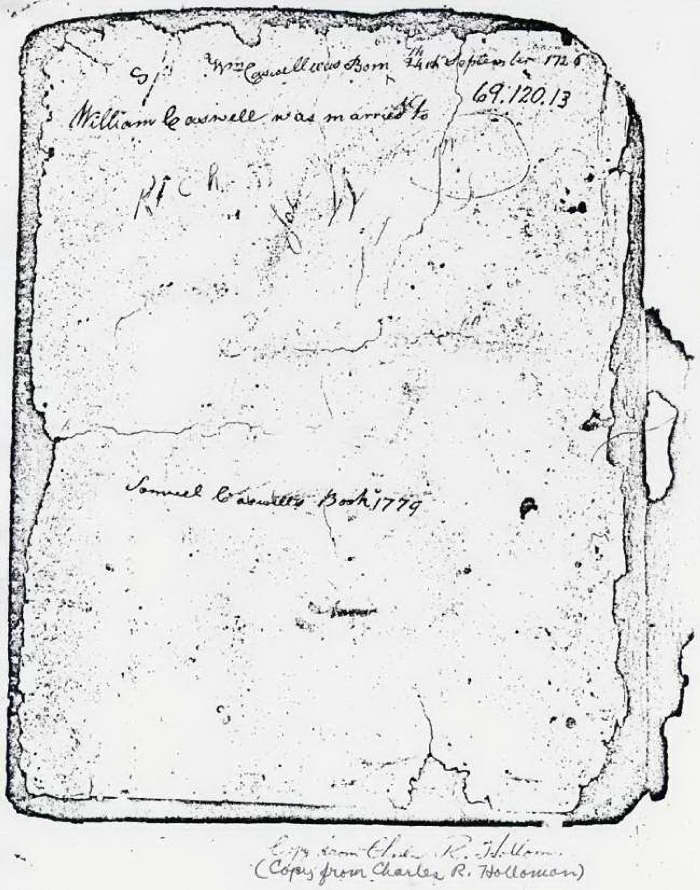 Wm Caswell was Born 24th September 1726
S
69.120.13
William Caswell was married to
RICH
Samuel Caswell's Book 1779
Copy from Charles R. Holloman
(Copy from Charles R. Holloman)